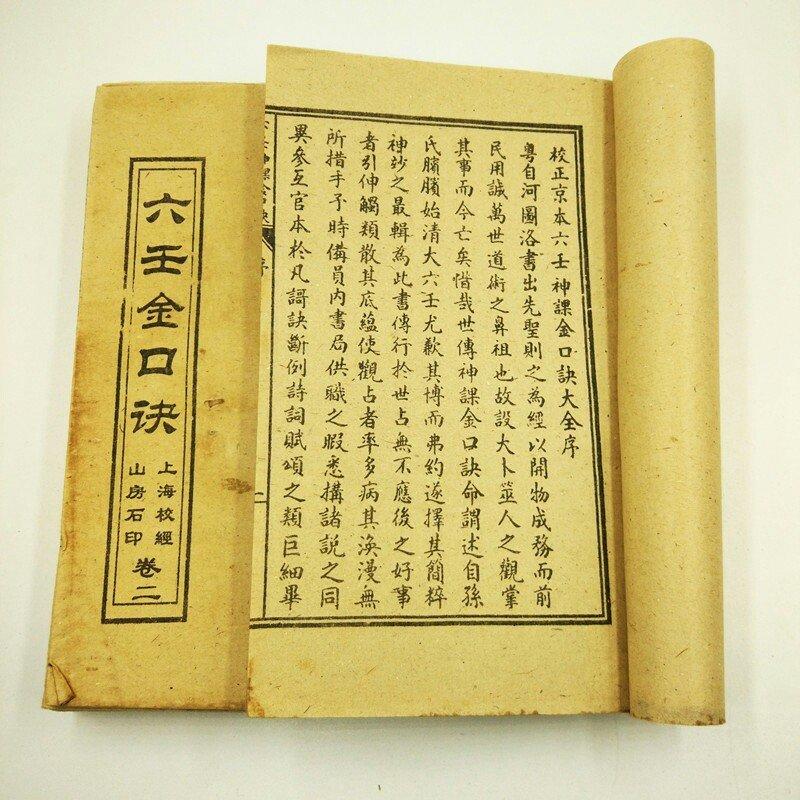 校正京本六壬神課金口訣大全序
粵自河圖洛書出先聖則之為經以開物成務而前
民用誠萬世道術之鼻祖也故設大卜筮人之觀掌
其事而今亡矣惜哉世傳神課金口訣命謂述自孫
氏臏臏始清大六壬尤歎其博而弗約遂擇其簡粹
神玅之最輯為此書傳行於世占無不應後之好事
者引伸觸類散其底蘊使觀占者率多病其渙漫無
所措手予時備員內書局供職之暇悉搆諸說之同
異參互官本於凡謌訣斷例詩詞賦頌之類巨細畢
神課金口訣
序
二
六壬金口诀
上海校經
山房石印
卷二